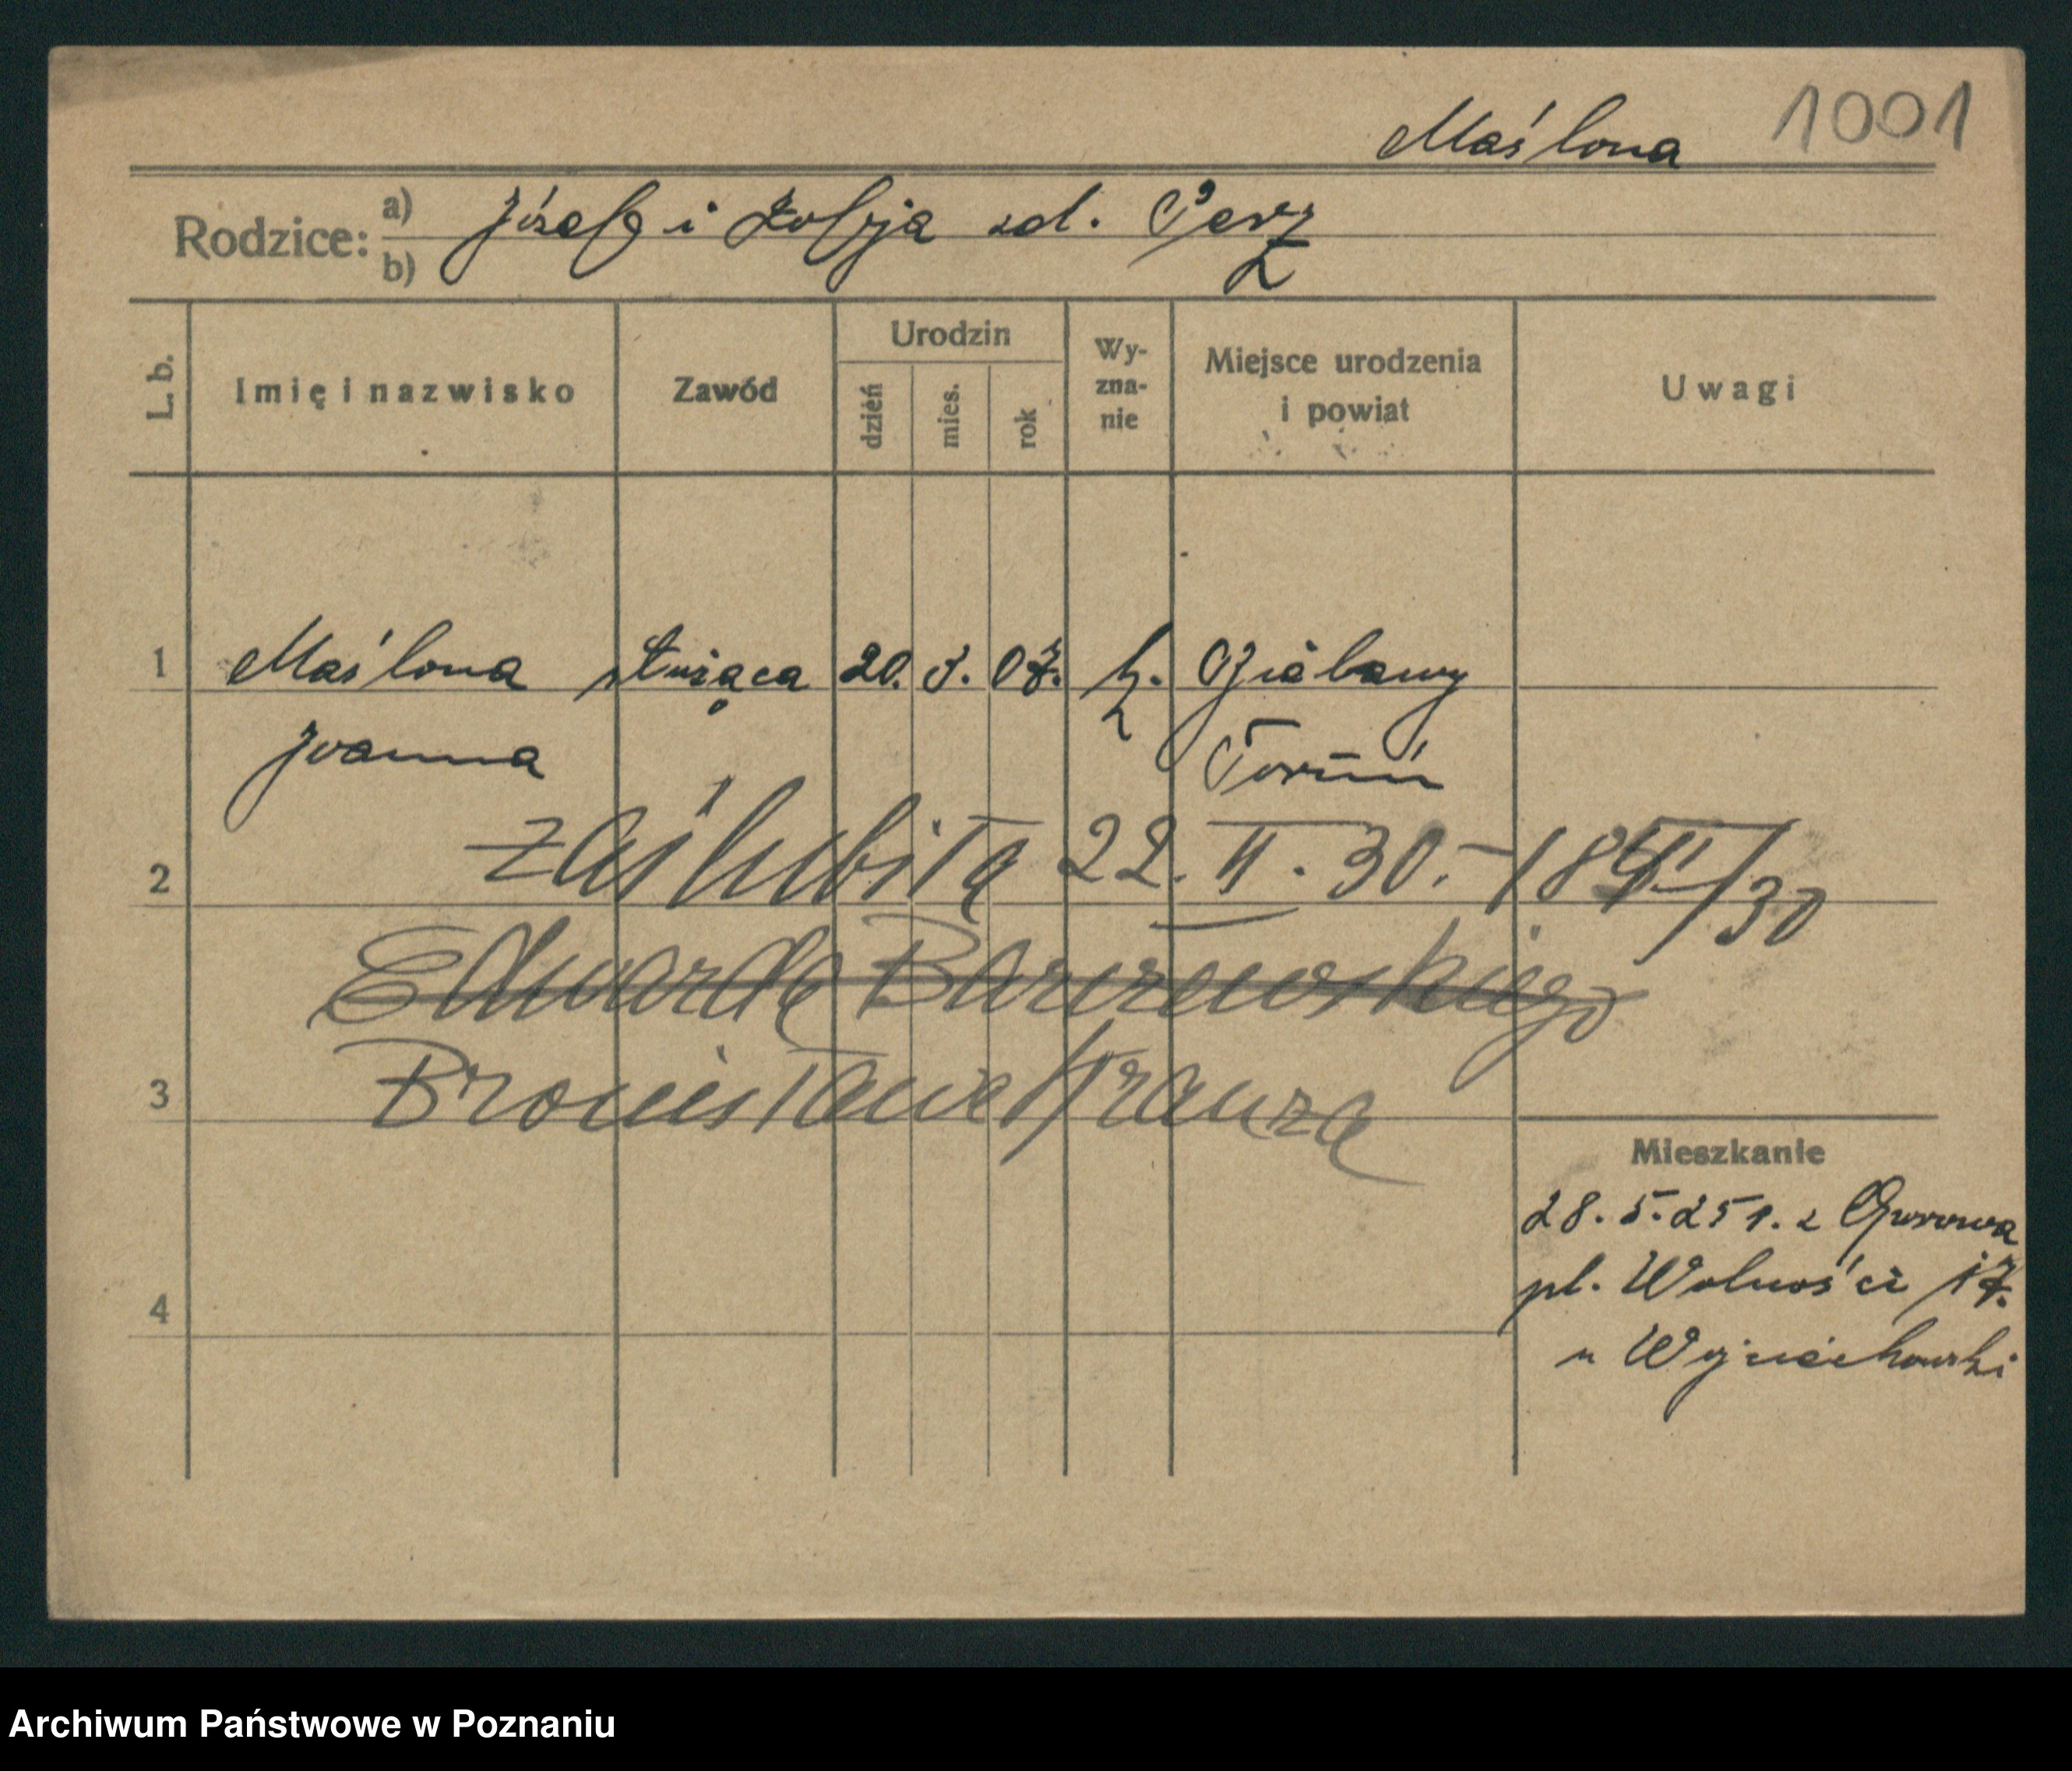 Maślona 1001
Rodzice: a) Józef i Zofja zd. Perz
b)
L. b.
Imię i nazwisko
Zawód
Urodzin
dzień
mies.
rok
Wy-
zna-
nie
Miejsce urodzenia
i powiat
Uwagi
1 Maślona służąca 20. 5. 07. k.
Joanna Toruń
2 zaślubiła 22. II. 30.
Edwarda
3 Bronisława Krauzę
Mieszkanie
28. 5. 25 r. z
pl. Wolności 17.
4
u Wojciechowski
Archiwum Państwowe w Poznaniu